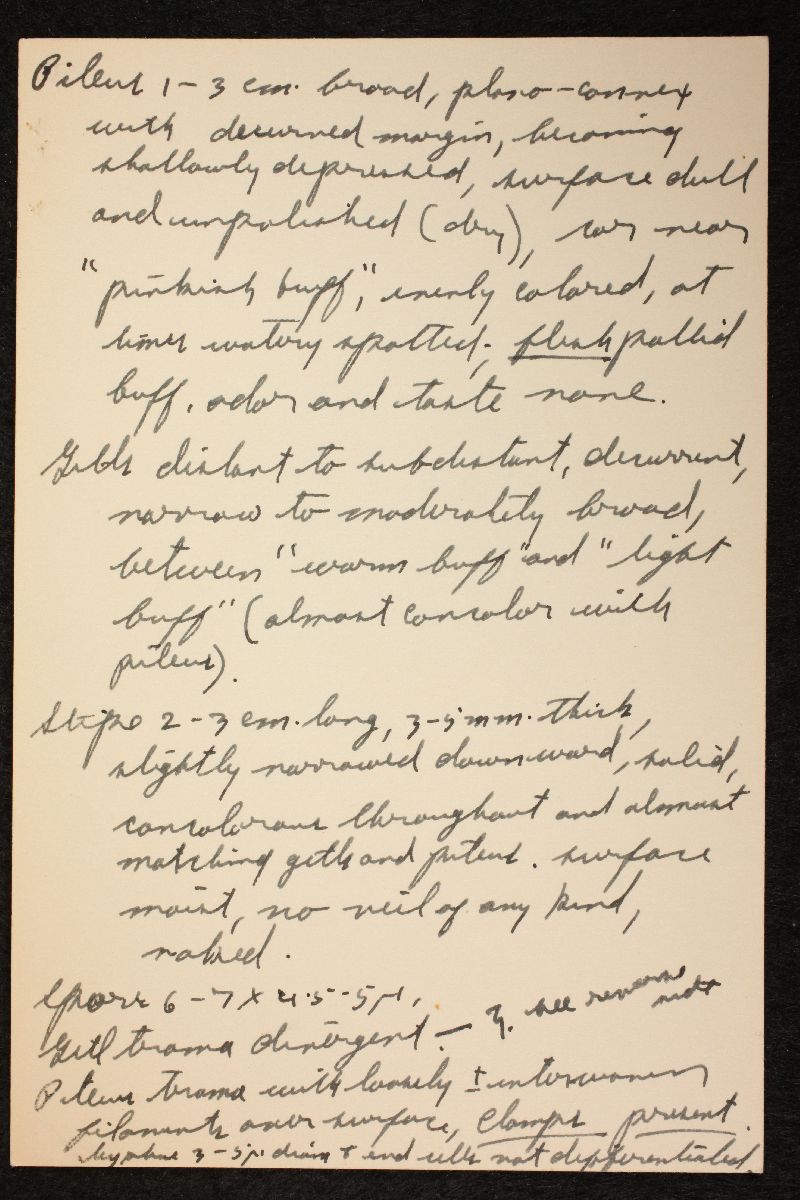 Pileus 1-3 cm. broad, plano-convex
with decurved margin, becoming
shallowly depressed, surface dull
and unpolished (dry), color near
"pinkish buff", evenly colored, at
times watery spotted; flesh pallid
buff, odor and taste none.
Gills distant to subdistant, decurrent,
narrow to moderately broad,
between "warm buff" and "light
buff" (almost concolor with
pileus).
Stipe 2-3 cm. long, 3-5 mm. thick,
slightly narrowed downward, solid,
concolorous throughout and almost
matching gills and pileus. surface
moist, no veil of any kind,
naked.
Spores 6-7 x 4.5-5µ,
Gill trama divergent. — ?. see reverse
note
Pileus trama with loosely ± interwoven
filaments over surface, clamps present.
hyphae 3-5µ diam & end cells not differentiated.